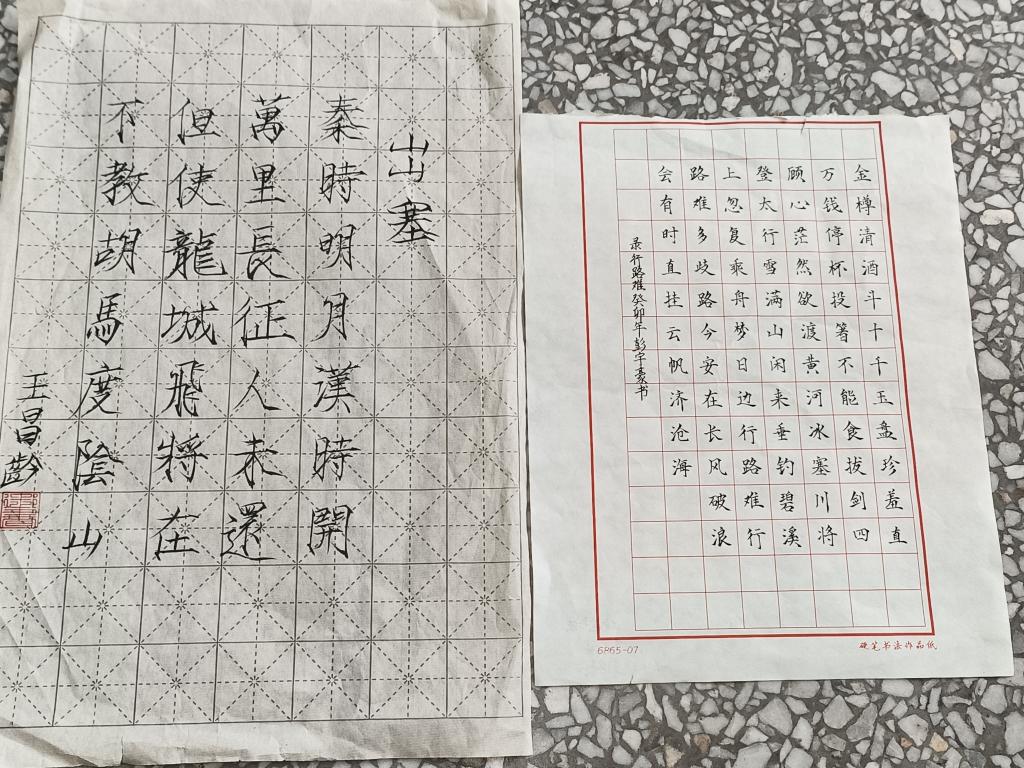 出塞
秦時明月漢時開
萬里長征人未還
但使龍城飛將在
不教胡馬度陰山
王昌齡
金樽清酒斗十千玉盘珍羞直
万钱停杯投箸不能食拔剑四
顾心茫然欲渡黄河冰塞川将
登太行雪满山闲来垂钓碧溪
上忽复乘舟梦日边行路难行
路难多歧路今安在长风破浪
会有时直挂云帆济沧海
录行路难癸卯年彭宇豪书
6P65-07
硬笔书法作品纸